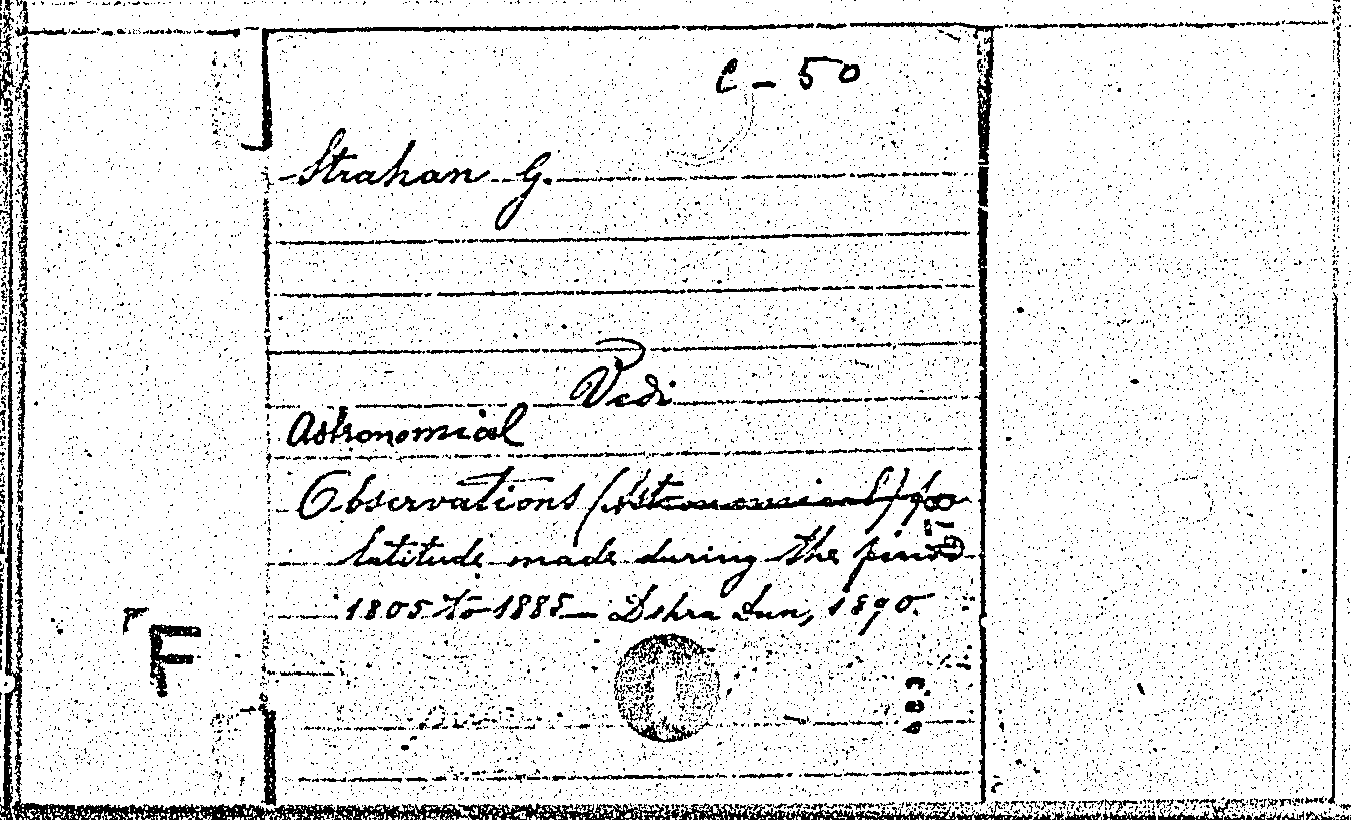 C - 50
Strahan G.
Vedi
Astronomical
Observations (Astronomical) for
latitude made during the period
1805 to 1885 — Dehra Dun, 1890.
F